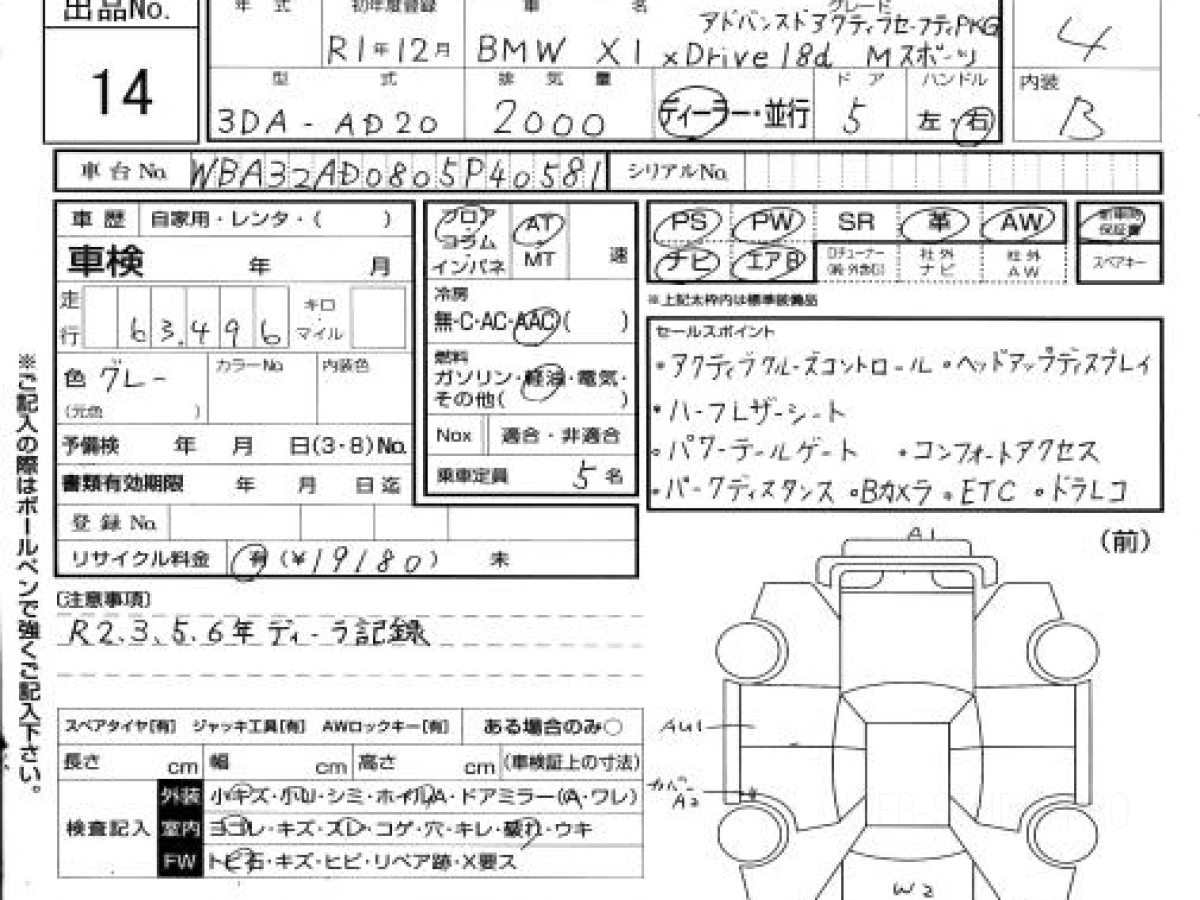 出品No.
14
年 式 初年度登録 車 名 グレード
R1年12月 BMW X1 アドバンスドアクティブセーフティPKG
xDrive18d Mスポーツ
4
型 式 排 気 量 ドア ハンドル 内装
3DA-AD20 2000 ディーラー・並行 5 左・右 B
車台No. WBA32AD0805P40581 シリアルNo.
車歴 自家用・レンタ・( )
車検 年 月
走行 63,496 キロ・マイル
色 グレー カラーNo 内装色
(元色 )
予備検 年 月 日(3・8)No.
書類有効期限 年 月 日迄
登録No.
リサイクル料金 有 (¥19180) 未
フロア・コラム・インパネ AT・MT 速
冷房
無・C・AC・AAC( )
燃料
ガソリン・軽油・電気・
その他( )
Nox 適合・非適合
乗車定員 5名
PS PW SR 革 AW 新車時保証書
ナビ エアB 社外ナビ 社外AW スペアキー
※上記太枠内は標準装備品
セールスポイント
・アクティブクルーズコントロール ・ヘッドアップディスプレイ
・ハーフレザーシート
・パワーテールゲート ・コンフォートアクセス
・パークディスタンス ・Bカメラ ・ETC ・ドラレコ
〔注意事項〕
R2.3.5.6年ディーラ記録
スペアタイヤ[有] ジャッキ工具[有] AWロックキー[有] ある場合のみ○
長さ cm 幅 cm 高さ cm (車検証上の寸法)
検査記入
外装 小キズ・小U・シミ・ホイルA・ドアミラー(A・ワレ)
室内 ヨゴレ・キズ・スレ・コゲ・穴・キレ・破れ・ウキ
FW トビ石・キズ・ヒビ・リペア跡・X要ス
※ご記入の際はボールペンで強くご記入下さい。
(前)
A1
AU1
カバー
A2
W2